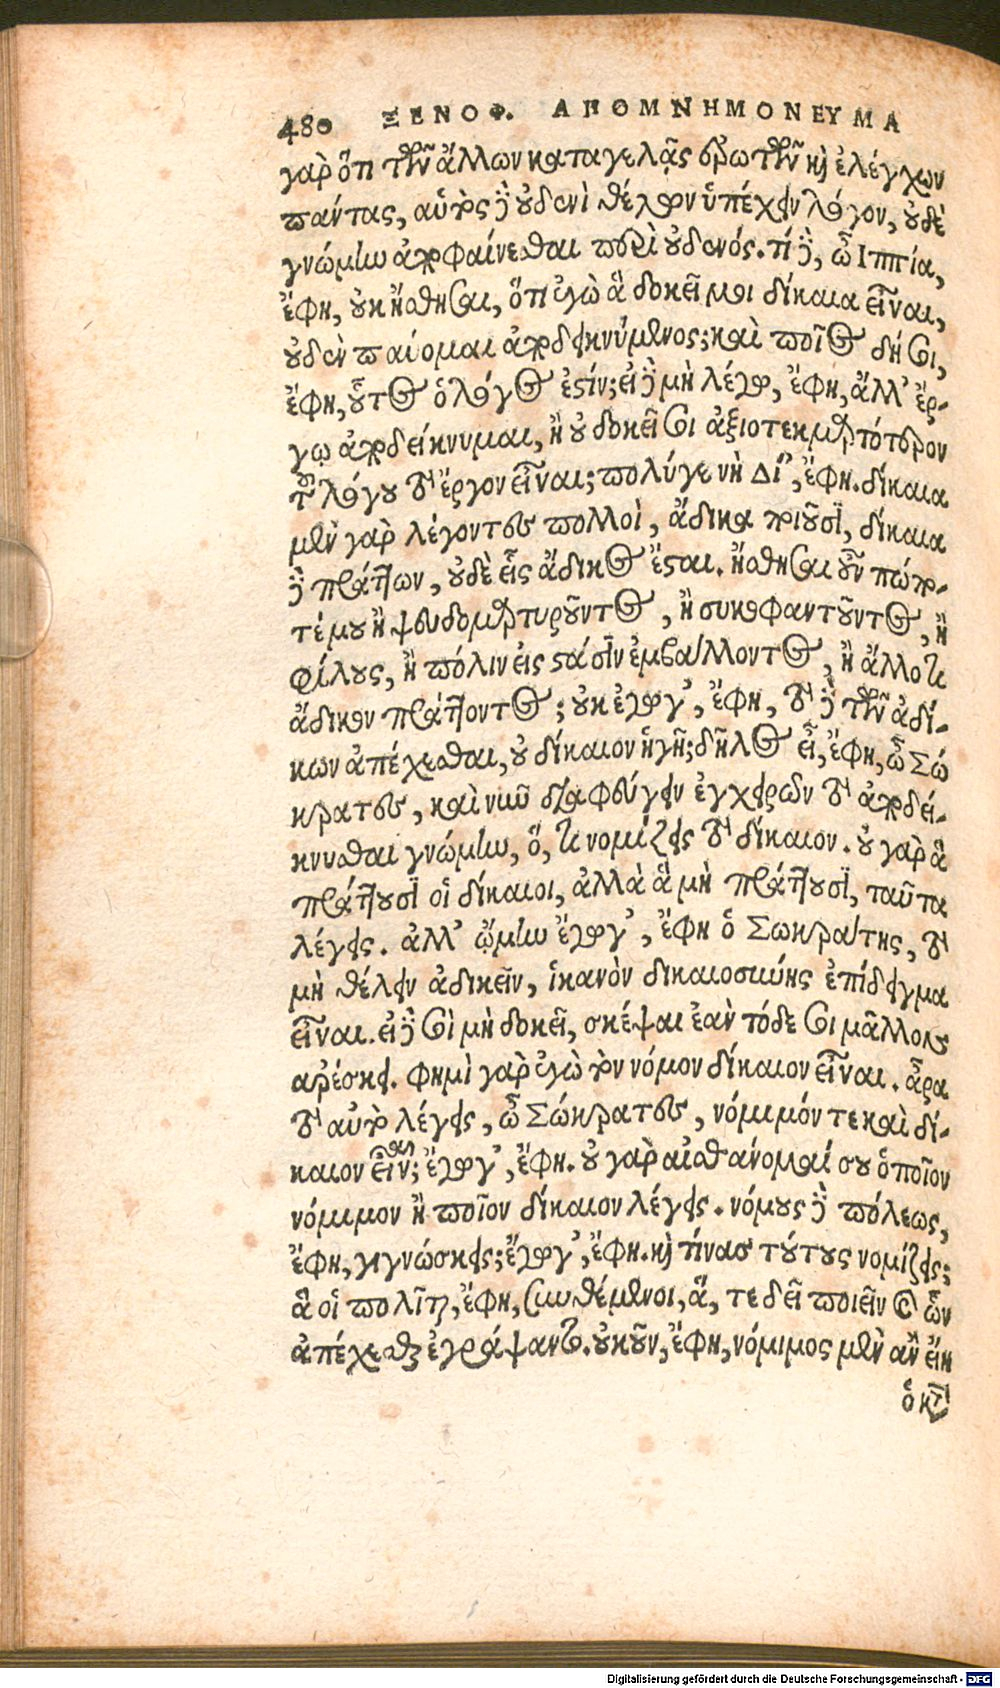 480 ΞΕΝΟΦ. ΑΠΟΜΝΗΜΟΝΕΥΜΑ
γὰρ ὅτι τῶν ἄλλων καταγελᾷς ἐρωτῶν καὶ ἐλέγχων
πάντας, αὐτὸς δὲ οὐδενὶ θέλων ὑπέχειν λόγον, οὐδὲ
γνώμην ἀποφαίνεσθαι περὶ οὐδενός. τί δὲ, ὦ Ιππία,
ἔφη, οὐκ ᾔσθησαι, ὅτι ἐγὼ ἃ δοκεῖ μοι δίκαια εἶναι,
οὐδὲν παύομαι ἀποδεικνύμενος; καὶ ποῖος δή σοι,
ἔφη, οὗτος ὁ λόγος ἐστίν; εἰ δὲ μὴ λέγω, ἔφη, ἀλλ’ ἔρ-
γῳ ἀποδείκνυμαι, ἢ οὐ δοκεῖ σοι ἀξιοτεκμαρτότερον
τοῦ λόγου τὸ ἔργον εἶναι; πολύ γε νὴ Δί’, ἔφη. δίκαια
μὲν γὰρ λέγοντες πολλοὶ, ἄδικα ποιοῦσι, δίκαια
δὲ πράττων, οὐδὲ εἷς ἄδικος ἔσται. ᾔσθησαι οὖν πώπο-
τέ μου ἢ ψευδομαρτυροῦντος, ἢ συκοφαντοῦντος, ἢ
φίλους, ἢ πόλιν εἰς στάσιν ἐμβάλλοντος, ἢ ἄλλο τι
ἄδικον πράττοντος; οὐκ ἔγωγ’, ἔφη, τὸ δὲ τῶν ἀδί-
κων ἀπέχεσθαι, οὐ δίκαιον ἡγῇ; δῆλος εἶ, ἔφη, ὦ Σώ
κρατες, καὶ νῦν διαφεύγειν ἐγχειρῶν τὸ ἀποδεί-
κνυσθαι γνώμην, ὅ, τι νομίζεις τὸ δίκαιον. οὐ γὰρ ἃ
πράττουσι οἱ δίκαιοι, ἀλλὰ ἃ μὴ πράττουσι, ταῦτα
λέγεις. ἀλλ’ ᾤμην ἔγωγ’, ἔφη ὁ Σωκράτης, τὸ
μὴ θέλειν ἀδικεῖν, ἱκανὸν δικαιοσύνης ἐπίδειγμα
εἶναι. εἰ δὲ σοὶ μὴ δοκεῖ, σκέψαι ἐὰν τόδε σοι μᾶλλον
ἀρέσκει. φημὶ γὰρ ἐγὼ τὸν νόμον δίκαιον εἶναι. ἆρα
τὸ αὐτὸ λέγεις, ὦ Σώκρατες, νόμιμόν τε καὶ δί-
καιον εἶναι; ἔγωγ’, ἔφη. οὐ γὰρ αἰσθάνομαί σου ὁποῖον
νόμιμον ἢ ποῖον δίκαιον λέγεις. νόμους δὲ πόλεως,
ἔφη, γιγνώσκεις; ἔγωγ’, ἔφη. καὶ τίνας τούτους νομίζεις;
ἃ οἱ πολῖται, ἔφη, συνθέμενοι, ἅ, τε δεῖ ποιεῖν καὶ ὧν
ἀπέχεσθαι ἐγράψαντο. οὐκοῦν, ἔφη, νόμιμος μὲν ἂν εἴη
ὁ κατὰ
Digitalisierung gefördert durch die Deutsche Forschungsgemeinschaft - DFG